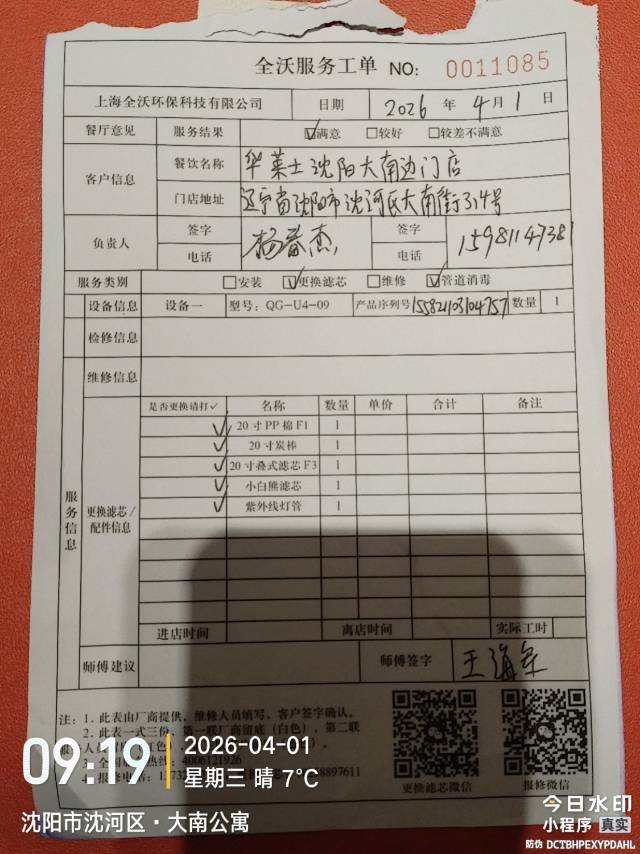 全沃服务工单 NO: 0011085
上海全沃环保科技有限公司 日期 2026 年 4 月 1 日
餐厅意见 服务结果 ☑满意 □较好 □较差不满意
客户信息 餐饮名称 华莱士沈阳大南边门店
门店地址 辽宁省沈阳市沈河区大南街314号
负责人 签字 杨春杰 签字 15981147381
电话 电话
服务类别 □安装 ☑更换滤芯 □维修 ☑管道消毒
设备信息 设备一 型号：QG-U4-09 产品序列号 数量 1
检修信息
维修信息
服务信息 更换滤芯/配件信息
是否更换请打✓ 名称 数量 单价 合计 备注
✓ 20寸PP棉F1 1
✓ 20寸炭棒 1
✓ 20寸叠式滤芯F3 1
✓ 小白熊滤芯 1
✓ 紫外线灯管 1
进店时间 离店时间 实际工时
师傅建议 师傅签字 王海
注：1. 此表由厂商提供，维修人员填写，客户签字确认。
2. 此表一式三份，第一联厂商留底（白色），第二联
热线：4006121926
更换滤芯微信 报修微信
09:19 2026-04-01
星期三 晴 7℃
沈阳市沈河区·大南公寓
今日水印
小程序 真实
防伪 DCTBHPEXYPDAHL